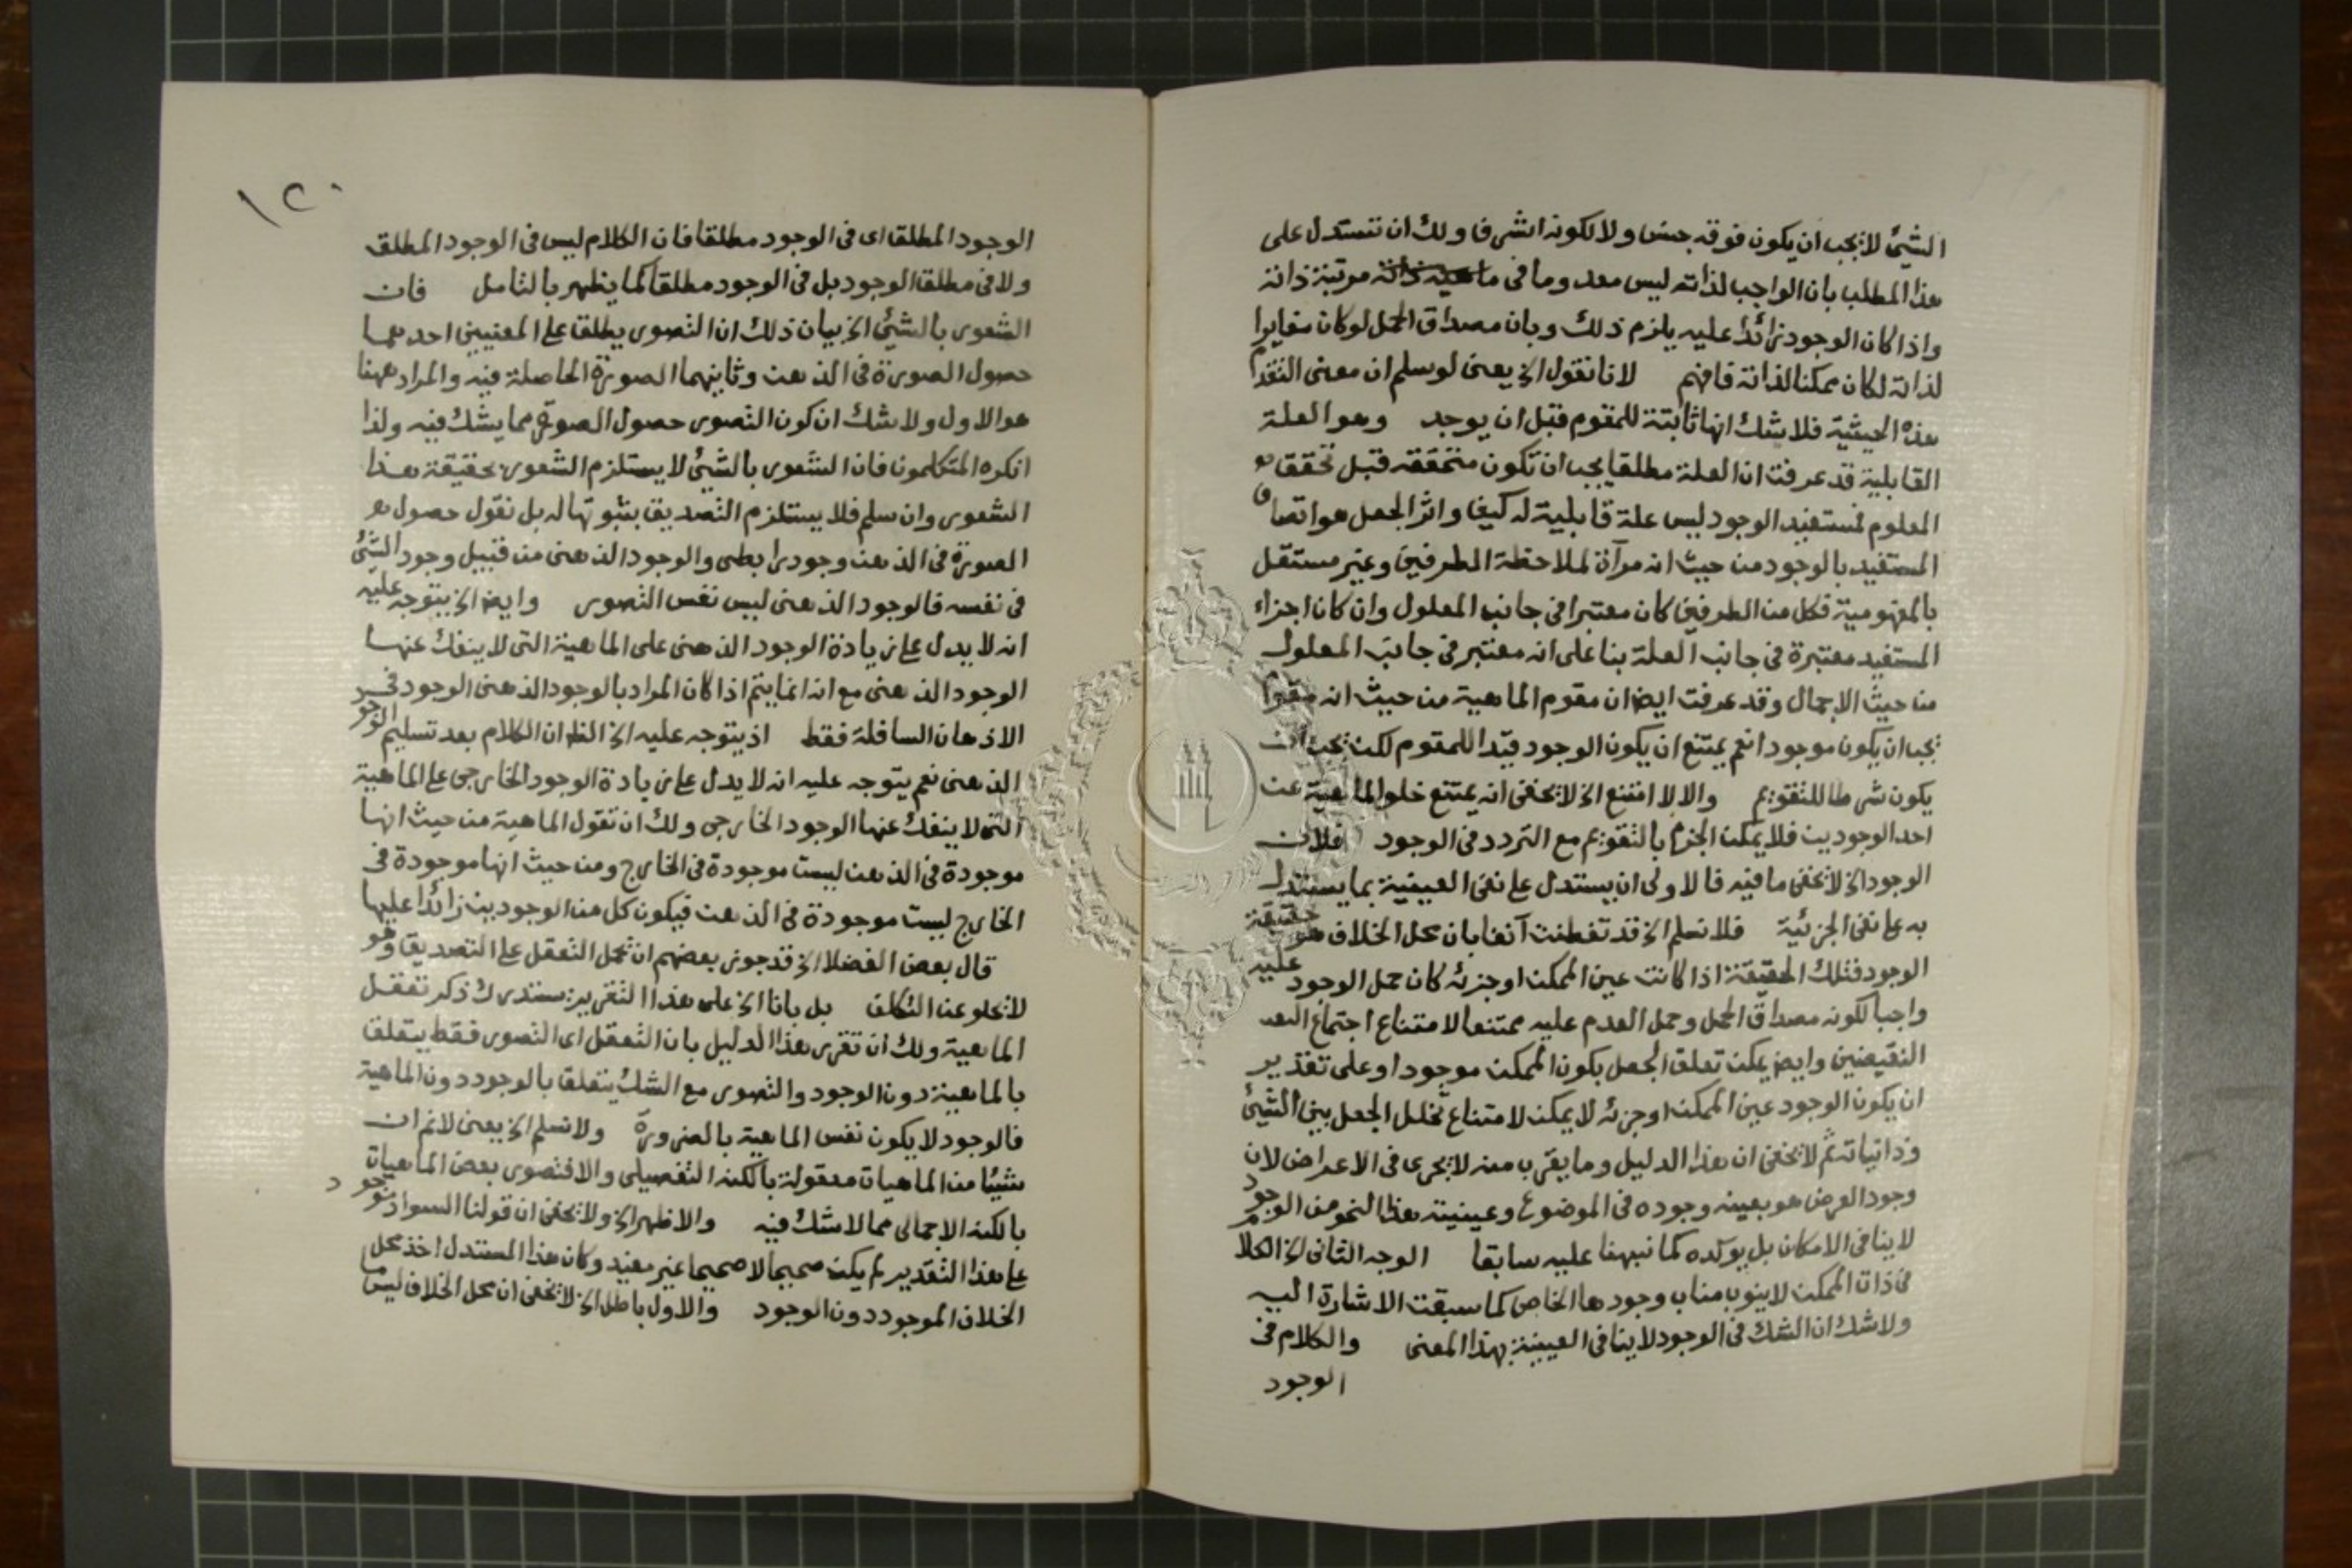 الشيئ لا يجب ان يكون فوقه جنس ولا لكونه اشرف ولك ان تستدل على
هذا المطلب بان الواجب لذاته ليس معدوما فى مرتبة ذاته
واذا كان الوجود زائدا عليه يلزم ذلك وبان مصداق الحمل لو كان مغايرا
لذاته لكان ممكنا لذاته فافهم لانا نقول الخ يعنى لو سلم ان معنى التقدم
هذه الحيثية فلا شك انها ثابتة للمقوم قبل ان يوجد وهو العلة
القابلية قد عرفت ان العلة مطلقا يجب ان تكون متحققه قبل تحقق
المعلوم فمستفيد الوجود ليس علة قابلية له كيف واثر الجعل هو اتصاف
المستفيد بالوجود من حيث انه مرآة لملاحظة الطرفين وغير مستقل
بالمفهومية فكل من الطرفين كان معتبرا فى جانب المعلول وان كان اجزاء
المستفيد معتبرة فى جانب العلة بنا على انه معتبر فى جانب المعلول
من حيث الاجمال وقد عرفت ايضا ان مقوم الماهية من حيث انه مقوم
يجب ان يكون موجودا نعم يمتنع ان يكون الوجود قيدا للمقوم لكن يجب ان
يكون شرطا للتقويم والا لا امتنع الخ لا يخفى انه يمتنع خلو الماهية عن
احد الوجودين فلا يمكن الجزم بالتقويم مع التردد فى الوجود فلان
الوجود الخ لا يخفى ما فيه فالاولى ان يستدل على نفى العينية بما يستدل
به على نفى الجزئية فلا نسلم الخ قد تفطنت آنفا بان محل الخلاف هو حقيقة
الوجود فتلك الحقيقة اذا كانت عين الممكن او جزئه كان حمل الوجود عليه
واجبا لكونه مصداق الحمل وحمل العدم عليه ممتنعا لامتناع اجتماع
النقيضين وايضا يمكن تعلق الجعل بكون الممكن موجودا وعلى تقدير
ان يكون الوجود عين الممكن او جزئه لا يمكن لامتناع تخلل الجعل بين الشيئ
وذاتياته ثم لا يخفى ان هذا الدليل وما يقرب منه لا يجرى فى الاعراض لان
وجود العرض هو بعينه وجوده فى الموضوع وعينية هذا النحو من الوجود
لا ينافى الامكان بل يوكده كما نبهنا عليه سابقا الوجه الثانى الخ الكلام
فى ذات الممكن لا ينوب مناب وجودها الخاص كما سبقت الاشارة اليه
ولا شك ان الشك فى الوجود لا ينافى العينية بهذا المعنى والكلام فى
الوجود
١٢٠
الوجود المطلق اى فى الوجود مطلقا فان الكلام ليس فى الوجود المطلق
ولا فى مطلق الوجود بل فى الوجود مطلقا كما يظهر بالتامل فان
الشعور بالشيئ الخ بيان ذلك ان التصور يطلق على المعنيين احدهما
حصول الصورة فى الذهن وثانيهما الصورة الحاصلة فيه والمراد ههنا
هو الاول ولا شك ان كون التصور حصول الصورة مما يشك فيه ولذا
انكره المتكلمون فان الشعور بالشيئ لا يستلزم الشعور بحقيقة هذا
الشعور وان سلم فلا يستلزم التصديق بثبوتها له بل نقول حصول
الصورة فى الذهن وجود رابطى والوجود الذهنى من قبيل وجود الشيئ
فى نفسه فالوجود الذهنى ليس نفس التصور وايضا الخ يتوجه عليه
انه لا يدل على زيادة الوجود الذهنى على الماهية التى لا ينفك عنها
الوجود الذهنى مع انه انما يتم اذا كان المراد بالوجود الذهنى الوجود فى
الاذهان السافلة فقط اذ يتوجه عليه الخ الظ ان الكلام بعد تسليم الوجود
الذهنى نعم يتوجه عليه انه لا يدل على زيادة الوجود الخارجى على الماهية
التى لا ينفك عنها الوجود الخارجى ولك ان تقول الماهية من حيث انها
موجودة فى الذهن ليست موجودة فى الخارج ومن حيث انها موجودة فى
الخارج ليست موجودة فى الذهن فيكون كل من الوجودين زائدا عليها
قال بعض الفضلا الخ قد جوز بعضهم ان تحمل التعقل على التصديق وهو
لا يخلو عن التكلف بل بانا الخ على هذا التقرير يستدرك ذكر تعقل
الماهية ولك ان تقرر هذا الدليل بان التعقل اى التصور فقط يتعلق
بالماهية دون الوجود والتصور مع الشك يتعلق بالوجود دون الماهية
فالوجود لا يكون نفس الماهية بالضرورة ولا نسلم الخ يعنى لا نم ان
شيئا من الماهيات معقولة بالكنه التفصيلى والا فتصور بعض الماهيات
بالكنه الاجمالى مما لا شك فيه والاظهر الخ ولا يخفى ان قولنا السواد موجود
على هذا التقدير لم يكن صحيحا لا صحيحا غير مفيد وكان هذا المستدل اخذ محل
الخلاف الموجود دون الوجود والاول باطل الخ لا يخفى ان محل الخلاف ليس ما